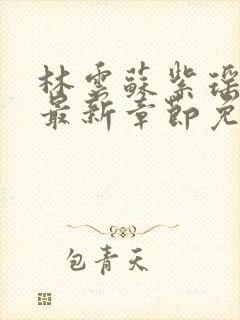 林雲蘇紫瑶
最新章節免
包青天